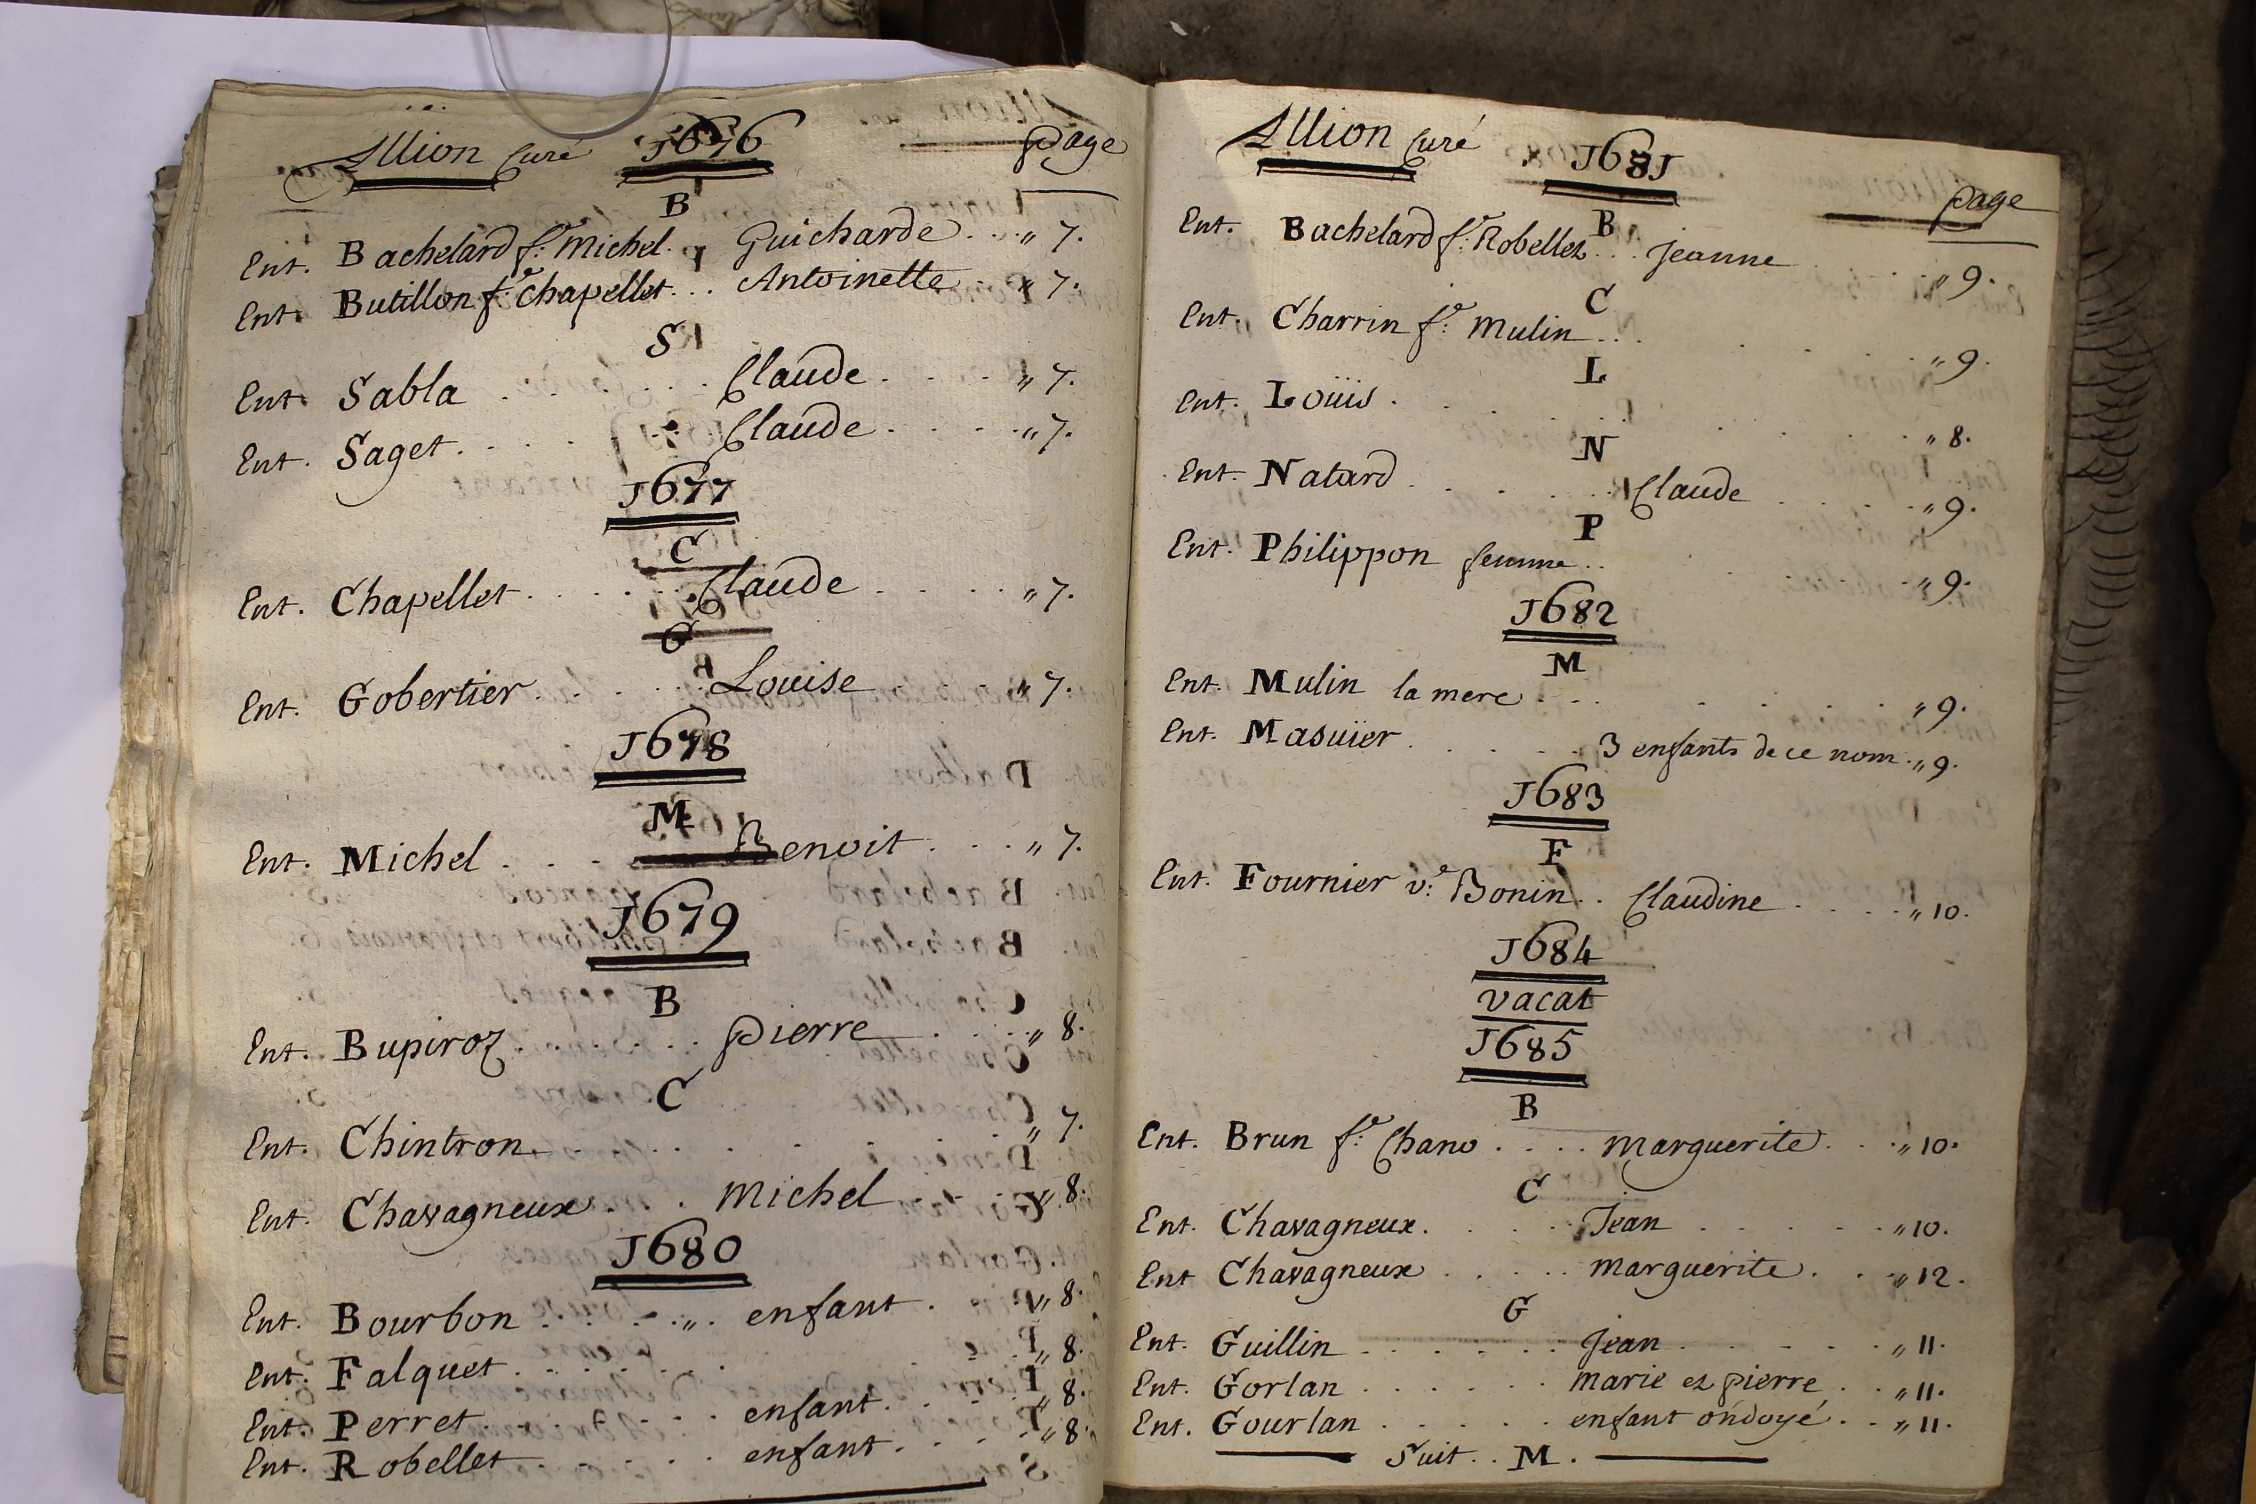 Allion Curé 1676 page
B
Ent. Bachelard fe. Michel. Guicharde . . . „ 7.
Ent. Butillon fe. Chapellet . . . Antoinette . . „ 7.
S
Ent. Sabla . . . . . Claude . . . . „ 7.
Ent. Saget . . . . . Claude . . . . „ 7.
1677
C
Ent. Chapellet . . . . . Claude . . . . „ 7.
G
Ent. Gobertier . . . . . Louise . . . . „ 7.
1678
M
Ent. Michel . . . . Benoit . . . „ 7.
1679
B
Ent. Bupiroz . . . . . pierre . . . . „ 8.
C
Ent. Chintron . . . . . . . . „ 7.
Ent. Chavagneux . . . Michel . . . . „ 8.
1680
Ent. Bourbon . . . . „ . enfant . . . „ 8.
Ent. Falquet . . . . . . . . . „ 8.
Ent. Perret . . . . . . enfant . . . . „ 8.
Ent. Robellet . . . . . enfant . . . . „ 8.
Allion Curé 1681
page
B
Ent. Bachelard fe. Robellet . . . Jeanne . . . „ 9.
C
Ent. Charrin fe. Mulin . . . . . . . „ 9.
L
Ent. Loüis . . . . . . . . . „ 8.
N
Ent. Natard . . . . . . Claude . . . . „ 9.
P
Ent. Philippon femme . . . . . . „ 9.
1682
M
Ent. Mulin la mere . . . . . . . . „ 9.
Ent. Masuïer . . . . . . 3 enfants de ce nom . „ 9.
1683
F
Ent. Fournier ve. Bonin . . Claudine . . . . „ 10.
1684
vacat
1685
B
Ent. Brun fe. Chano . . . . Marguerite . . . „ 10.
C
Ent. Chavagneux . . . . . Jean . . . . . . „ 10.
Ent Chavagneux . . . . . Marguerite . . . „ 12.
G
Ent. Guillin . . . . . . . Jean . . . . . . „ 11.
Ent. Gorlan . . . . . . Marie et pierre . . „ 11.
Ent. Gourlan . . . . . enfant ondoyé . . „ 11.
Suit . . M .